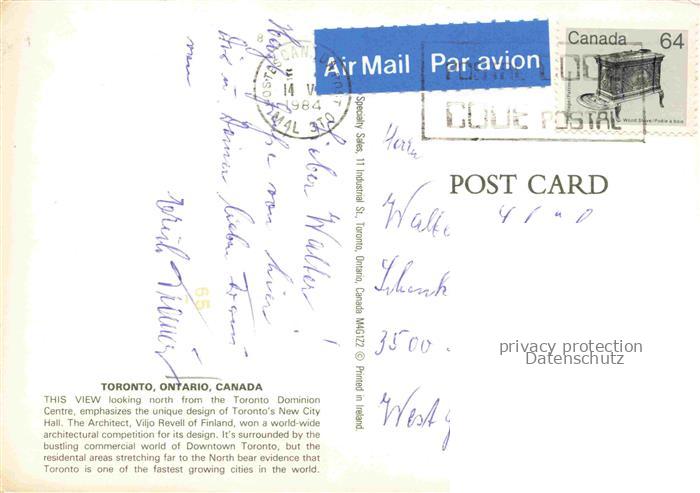 Air Mail Par avion
Canada 64
Wood Stove/Poêle à bois
CANADA
14 V
1984
M4L
CODE POSTAL
POST CARD
Lieber Walter!
von hier
Dir u. Deiner lieben
Herrn
Walte
3500
West g
privacy protection
Datenschutz
Specialty Sales, 11 Industrial St., Toronto, Ontario, Canada M4G1Z2 © Printed in Ireland.
TORONTO, ONTARIO, CANADA
THIS VIEW looking north from the Toronto Dominion
Centre, emphasizes the unique design of Toronto's New City
Hall. The Architect, Viljo Revell of Finland, won a world-wide
architectural competition for its design. It's surrounded by the
bustling commercial world of Downtown Toronto, but the
residental areas stretching far to the North bear evidence that
Toronto is one of the fastest growing cities in the world.